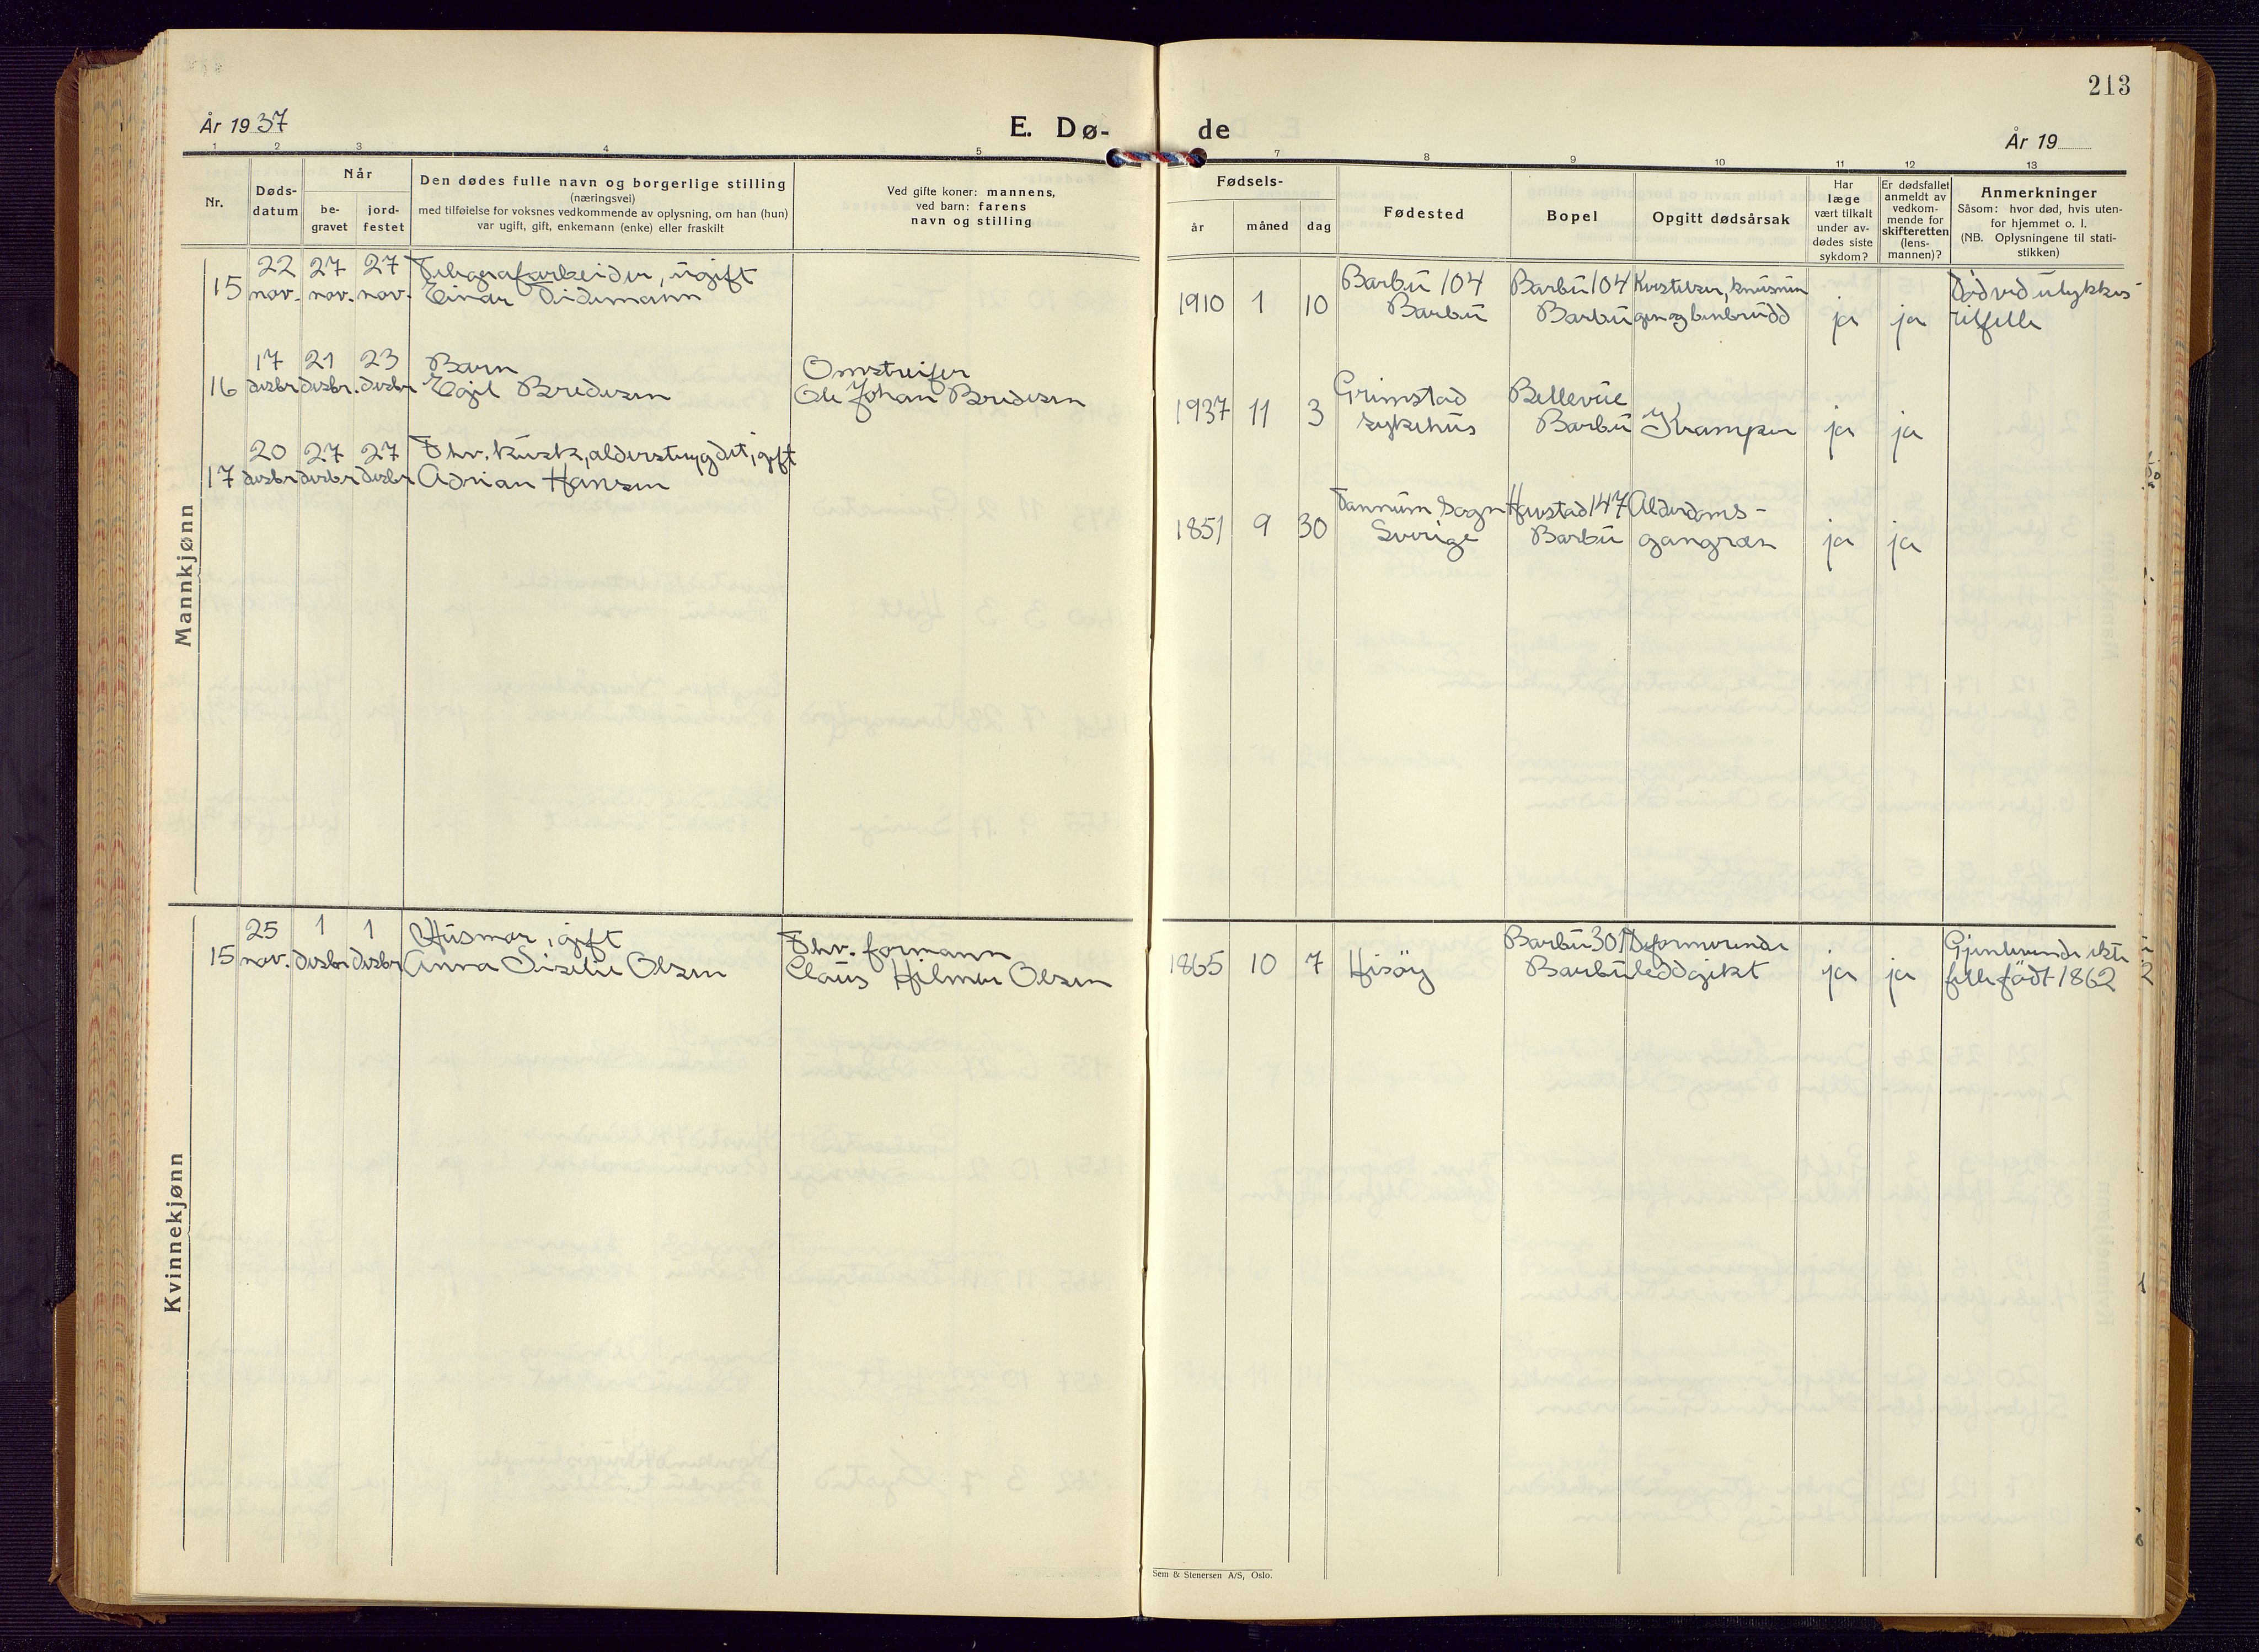 213
År 1937
E. Dø-
de
År 19
1 2 3 4 5
7 8 9 10 11 12 13
Nr.
Døds-
datum
Når
be-
gravet
jord-
festet
Den dødes fulle navn og borgerlige stilling
(næringsvei)
med tilføielse for voksnes vedkommende av oplysning, om han (hun)
var ugift, gift, enkemann (enke) eller fraskilt
Ved gifte koner: mannens,
ved barn: farens
navn og stilling
Fødsels-
år måned dag
Fødested
Bopel
Opgitt dødsårsak
Har
læge
vært tilkalt
under av-
dødes siste
sykdom?
Er dødsfallet
anmeldt av
vedkom-
mende for
skifteretten
(lens-
mannen)?
Anmerkninger
Såsom: hvor død, hvis uten-
for hjemmet o. l.
(NB. Oplysningene til stati-
stikken)
Mannkjønn
22 27 27 Telegrafarbeider, ugift
15 nov. nov. nov. Einar Tidemann
Barbu 104 Barbu 104
1910 1 10 Barbu Barbu gen og benbrudd ja ja
Død ved ulykkes-
tilfelle
17 21 23 Barn Omstreifer
16 desbr desbr. desbr Egil Bredesen Ole Johan Bredesen
Grimstad Bellevue
1937 11 3 sykehus Barbu Kramper ja ja
20 27 27 Fhv. kusk, alderstrygdet, gift
17 desbr desbr desbr Adrian Hansen
Tannum sogn Harstad 147 Alderdoms-
1851 9 30 Sverige Barbu gangræn ja ja
Kvinnekjønn
25 1 1 Husmor, gift Fhv. formann
15 nov. desbr desbr Anna Sisilie Olsen Claus Hilmer Olsen
Barbu 301 Deformerende
1865 10 7 Hisøy Barbu leddgikt ja ja
Gjenlevende ekte-
felle født 1862
Sem & Stenersen A/S, Oslo.